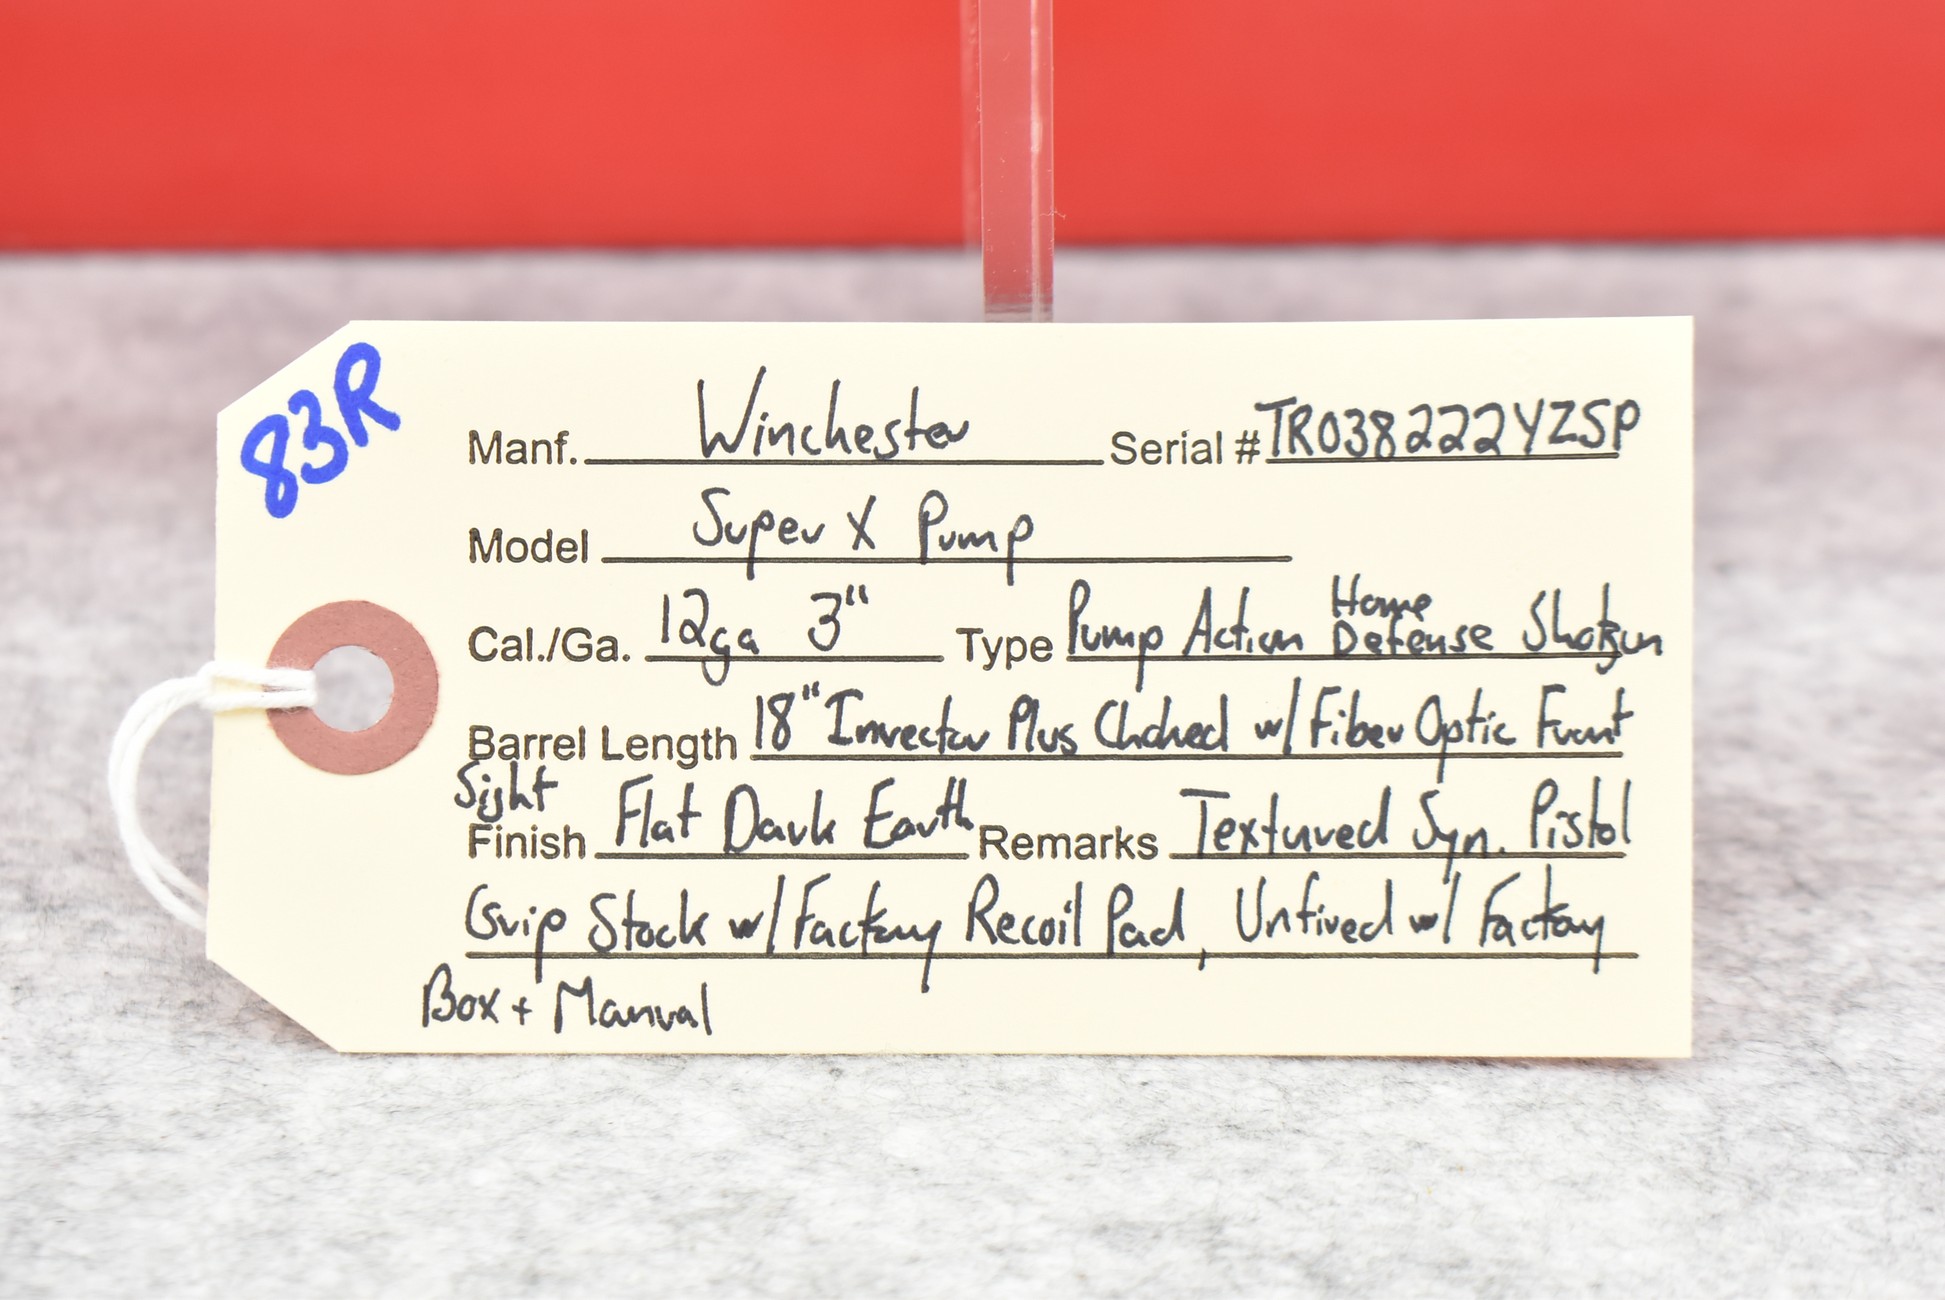 83R
Manf. Winchester Serial # TR038222YZSP
Model Super X Pump
Cal./Ga. 12ga 3" Type Pump Action Home Defense Shotgun
Barrel Length 18" Invector Plus Choked w/ Fiber Optic Front
Sight
Finish Flat Dark Earth Remarks Textured Syn. Pistol
Grip Stock w/ Factory Recoil Pad, Unfired w/ Factory
Box + Manual